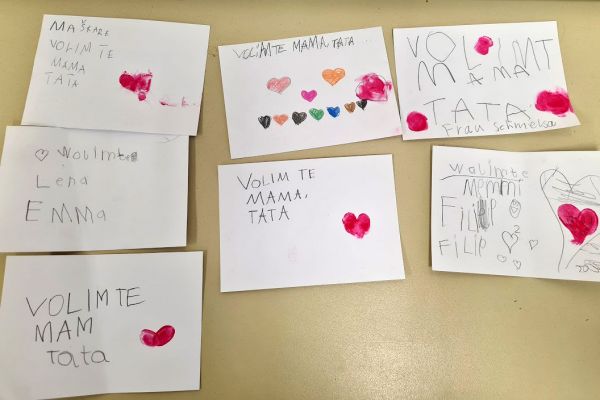 MAŠKARE
VOLIM TE
MAMA
TATA
VOLIM TE MAMA, TATA
VOLIMT
MAMA
TATA
Frau Schmelsa
Wolimte
Lena
EMMa
VOLIM TE
MAMA,
TATA
Walimte
Memmi
FILIP
FILIP
2
VOLIM TE
MAM
Tata